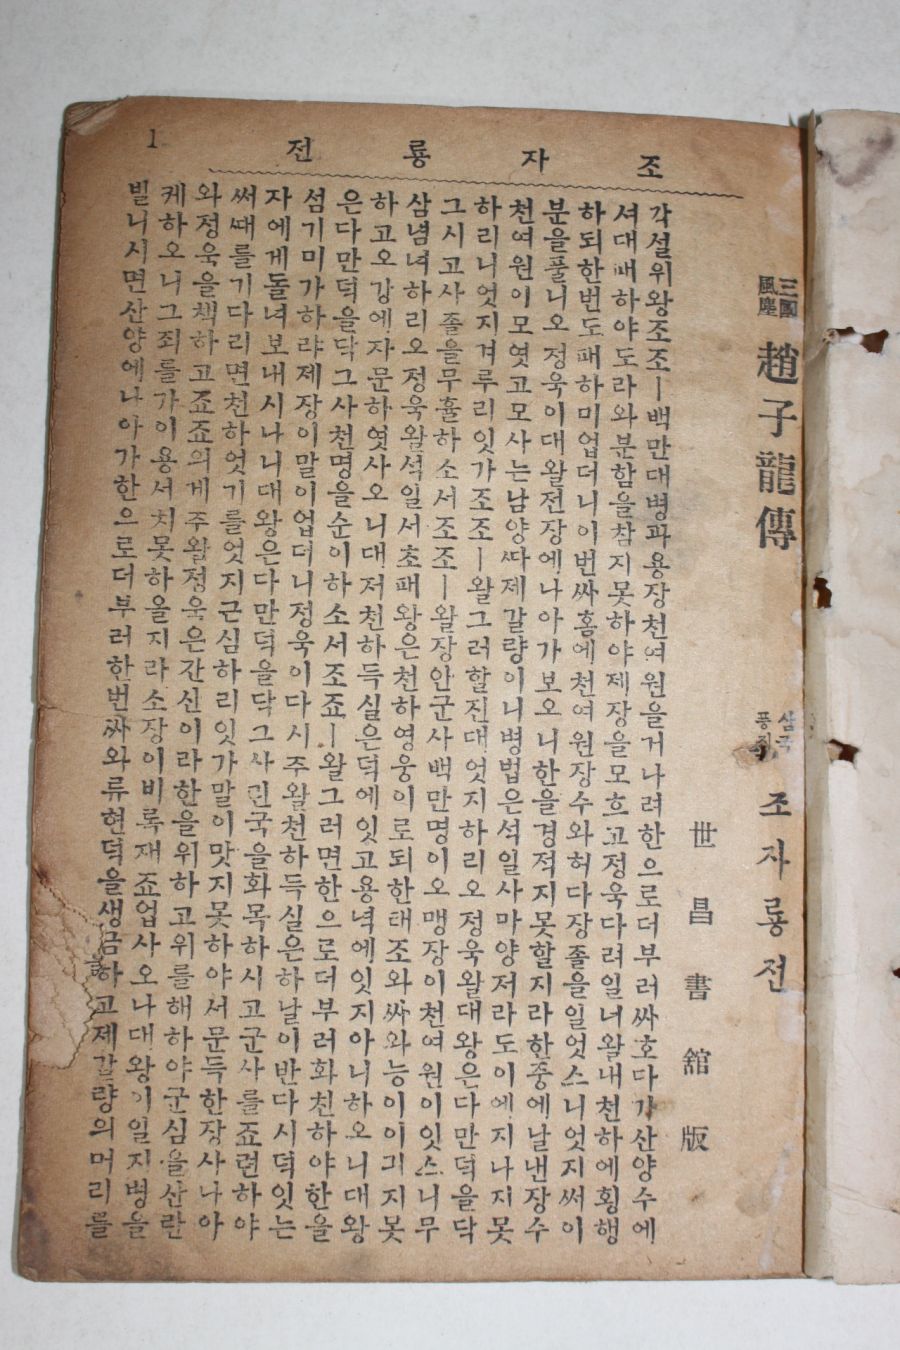 조자룡전
1
三國風塵 趙子龍傳
삼국풍진 조자룡전
世昌書舘版
각설위왕조조ㅣ백만대병과용장천여원을거나려한으로더부러싸호다가산양수에
셔대패하야도라와분함을참지못하야제장을모흐고정욱다려일너왈내천하에횡행
하되한번도패하미업더니이번싸홈에천여원장수와허다장졸을일엇스니엇지써이
분을풀니오정욱이대왈전장에나아가보오니한을경적지못할지라한중에날낸장수
천여원이모엿고모사는남양따제갈량이니병법은석일사마양저라도이에지나지못
하리니엇지겨루리잇가조조ㅣ왈그러할진대엇지하리오정욱왈대왕은다만덕을닥
그시고사졸을무휼하소서조조ㅣ왈장안군사백만명이오맹장이천여원이잇스니무
삼념녀하리오정욱왈석일서초패왕은천하영웅이로되한태조와싸와능이이긔지못
하고오강에자문하엿사오니대저천하득실은덕에잇고용녁에잇지아니하오니대왕
은다만덕을닥그사천명을순이하소서조죠ㅣ왈그러면한으로더부러화친하야한을
섬기미가하랴제장이말이업더니정욱이다시주왈천하득실은하날이반다시덕잇는
자에게돌녀보내시나니대왕은다만덕을닥그사린국을화목하시고군사를죠련하야
써때를기다리면천하엇기를엇지근심하리잇가말이맛지못하야서문득한장사나아
와정욱을책하고죠죠의게주왈정욱은간신이라한을위하고위를해하야군심을산란
케하오니그죄를가이용서치못하올지라소장이비록재죠업사오나대왕이일지병을
빌니시면산양에나아가한으로더부러한번싸와류현덕을생금하고제갈량의머리를